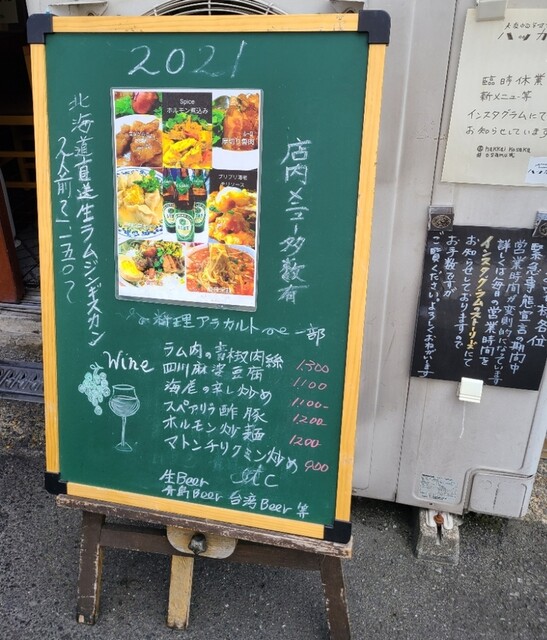 2021
北海道直送生ラムジンギスカン
2人前で1,550で
店内メニュー多数有
Spice
ホルモン煮込み
プリプリ海老
チリソース
料理アラカルト 一部
ラム肉の青椒肉絲 1300
四川麻婆豆腐 1100
海老の辛し炒め 1100
スペアリブ酢豚 1200
ホルモン炒麺 1200
マトンチリクミン炒め 900
etc
Wine
生Beer
青島Beer 台湾Beer 等
臨時休業
新メニュー等
インスタグラムにて
お知らせしています
お客様各位
緊急事態宣言の期間中
営業時間が変則的になっています
詳しくは毎日の営業時間を
インスタグラムのストーリーズにて
お知らせしておりますので
お手数ですが
ご覧くださいますようよろしくおねがいします